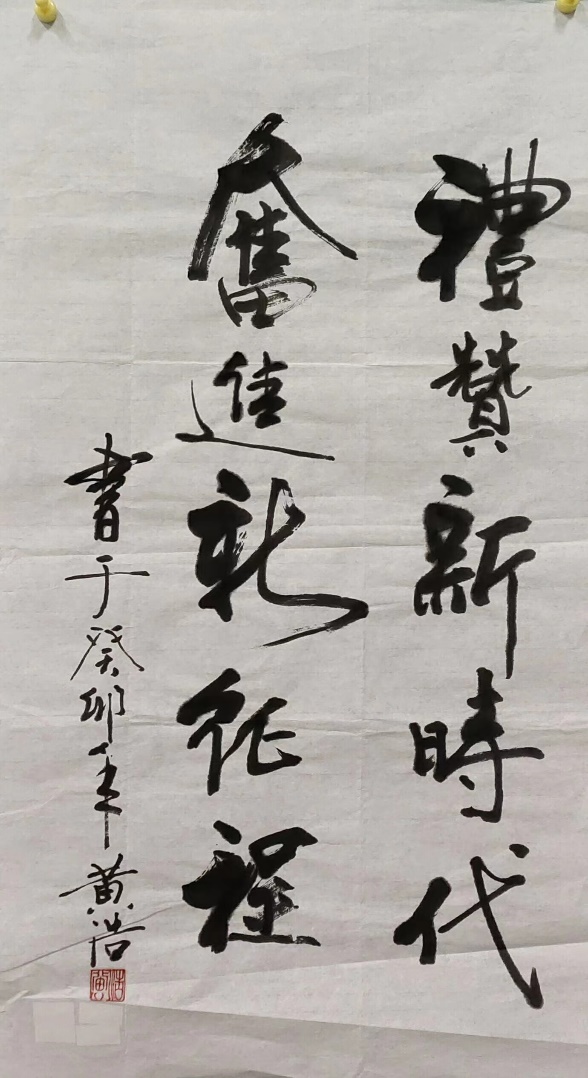 禮贊新時代
奮進新征程
書于癸卯年黄浩